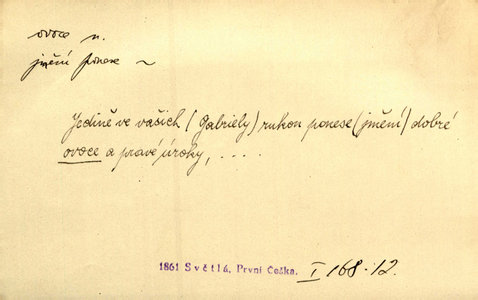 ovoce n.
jmění ponese ~
Jedině ve vašich (Gabriely) rukou ponese (jmění) dobré
ovoce a pravé úroky, . . . .
1861 Světlá, První Češka. I 168·12.